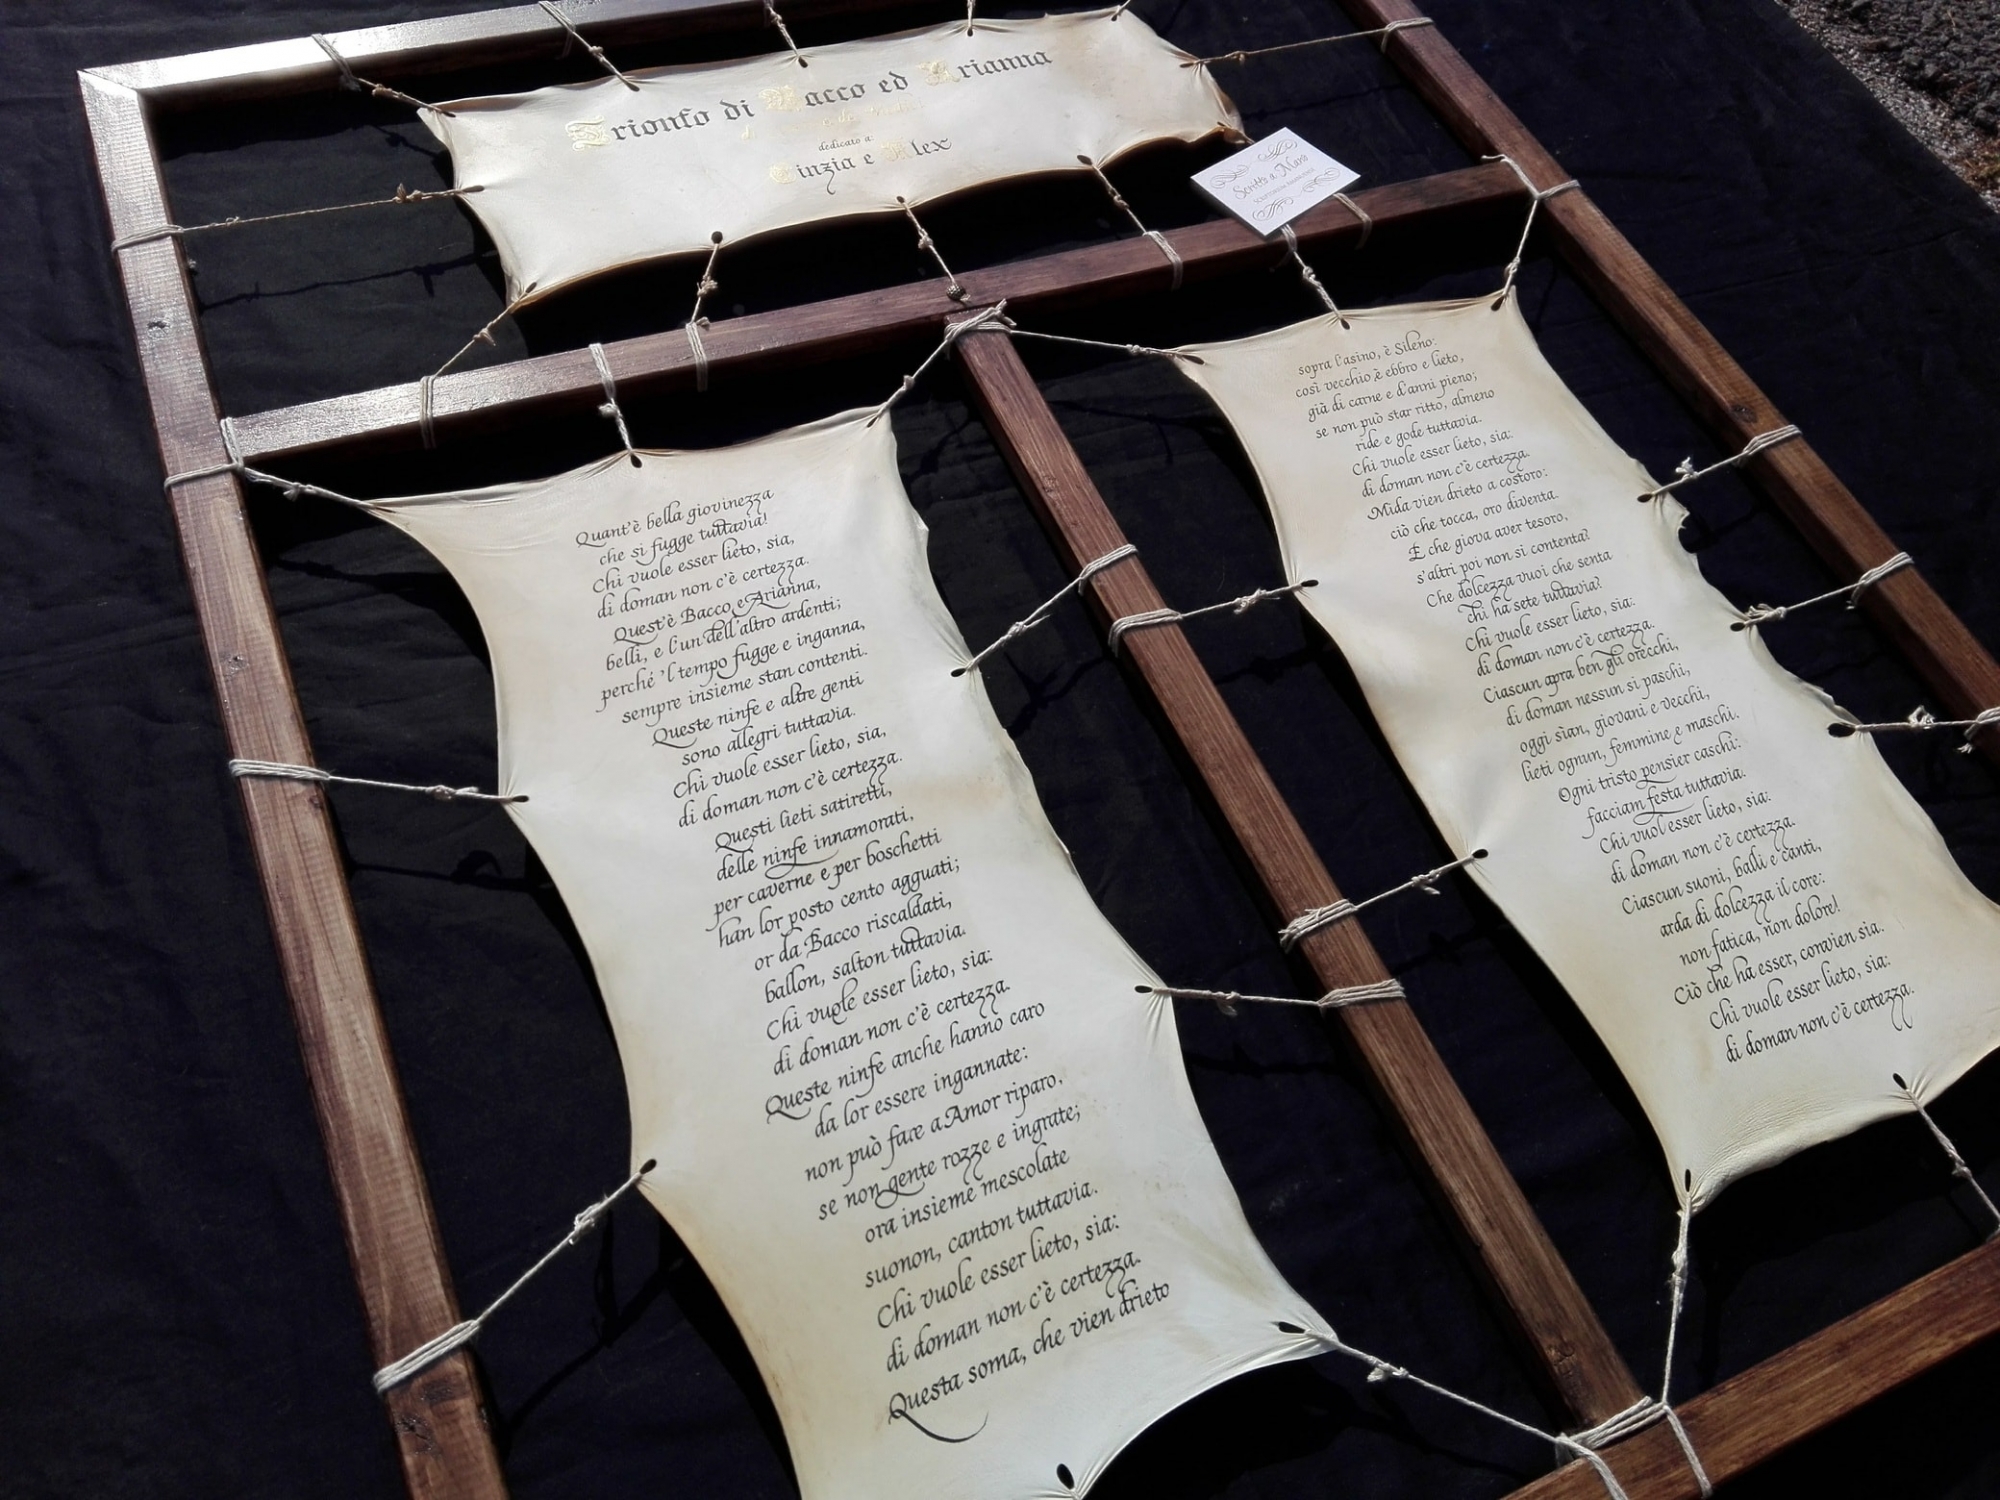 Trionfo di Bacco ed Arianna
dedicato a
Cinzia e Alex
Scritto a Mano
Quant'è bella giovinezza
che si fugge tuttavia!
Chi vuole esser lieto, sia,
di doman non c'è certezza.
Quest'è Bacco e Arianna,
belli, e l'un dell'altro ardenti;
perché 'l tempo fugge e inganna,
sempre insieme stan contenti.
Queste ninfe e altre genti
sono allegri tuttavia.
Chi vuole esser lieto, sia,
di doman non c'è certezza.
Questi lieti satiretti,
delle ninfe innamorati,
per caverne e per boschetti
han lor posto cento agguati;
or da Bacco riscaldati,
ballon, salton tuttavia.
Chi vuole esser lieto, sia:
di doman non c'è certezza.
Queste ninfe anche hanno caro
da lor essere ingannate:
non può fare a Amor riparo,
se non gente rozze e ingrate;
ora insieme mescolate
suonon, canton tuttavia.
Chi vuole esser lieto, sia:
di doman non c'è certezza.
Questa soma, che vien drieto
sopra l'asino, è Sileno:
così vecchio è ebbro e lieto,
già di carne e d'anni pieno;
se non può star ritto, almeno
ride e gode tuttavia.
Chi vuole esser lieto, sia:
di doman non c'è certezza.
Mida vien drieto a costoro:
ciò che tocca, oro diventa.
E che giova aver tesoro,
s'altri poi non si contenta?
Che dolcezza vuoi che senta
chi ha sete tuttavia?
Chi vuole esser lieto, sia:
di doman non c'è certezza.
Ciascun apra ben gli orecchi,
di doman nessun si paschi,
oggi sìan, giovani e vecchi,
lieti ognun, femmine e maschi.
Ogni tristo pensier caschi:
facciam festa tuttavia.
Chi vuol esser lieto, sia:
di doman non c'è certezza.
Ciascun suoni, balli e canti,
arda di dolcezza il core:
non fatica, non dolore!
Ciò che ha esser, convien sia.
Chi vuole esser lieto, sia:
di doman non c'è certezza.